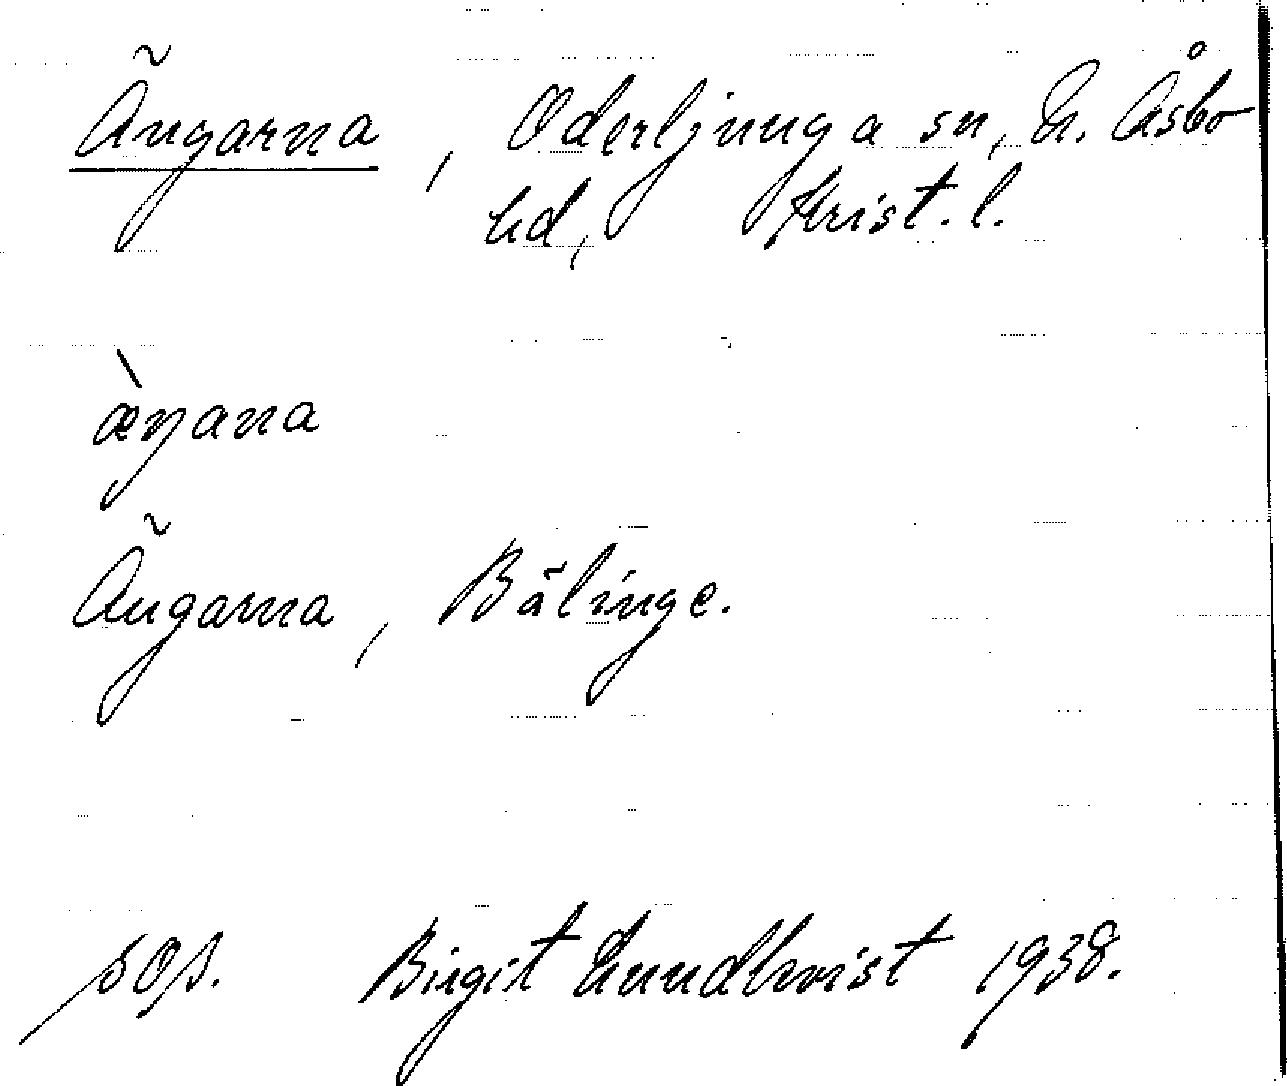 Ängarna, Oderljunga sn, N. Åsbo
hd, Krist. l.
æ̀ŋana
Ängarna, Bälinge.
sOs. Birgit Lundkvist 1938.